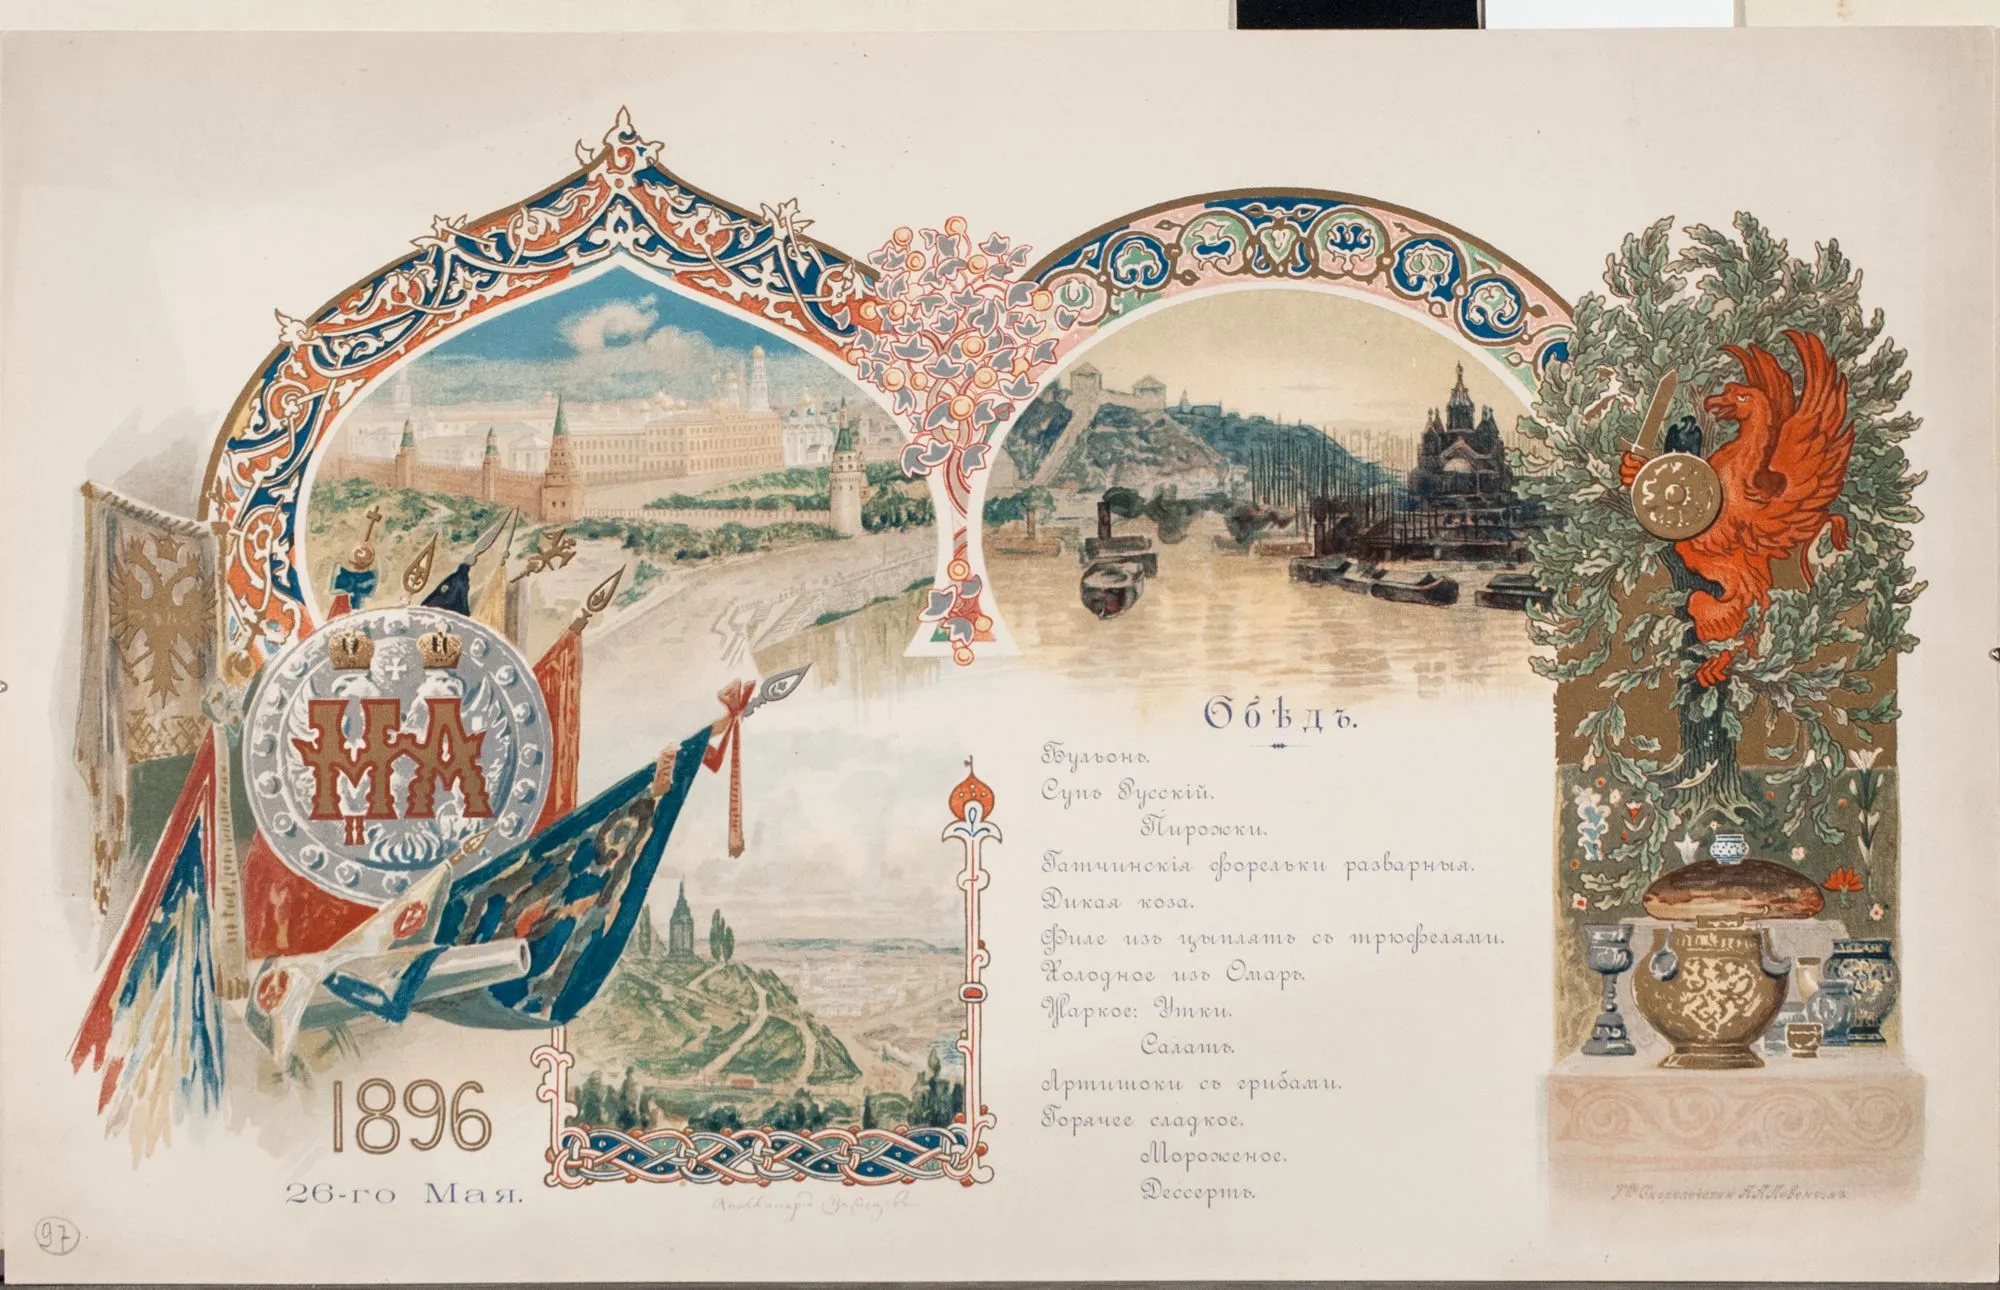 Н II А
1896
26-го Мая.
Обѣдъ.
Бульонъ.
Супъ Русскій.
Пирожки.
Гатчинскія форельки разварныя.
Дикая коза.
Филе изъ цыплятъ съ трюфелями.
Холодное изъ Омаръ.
Жаркое: Утки.
Салатъ.
Артишоки съ грибами.
Горячее сладкое.
Мороженое.
Дессертъ.
Аполлинарій Васнецовъ
Скоропечатни А.А.Левенсонъ
97